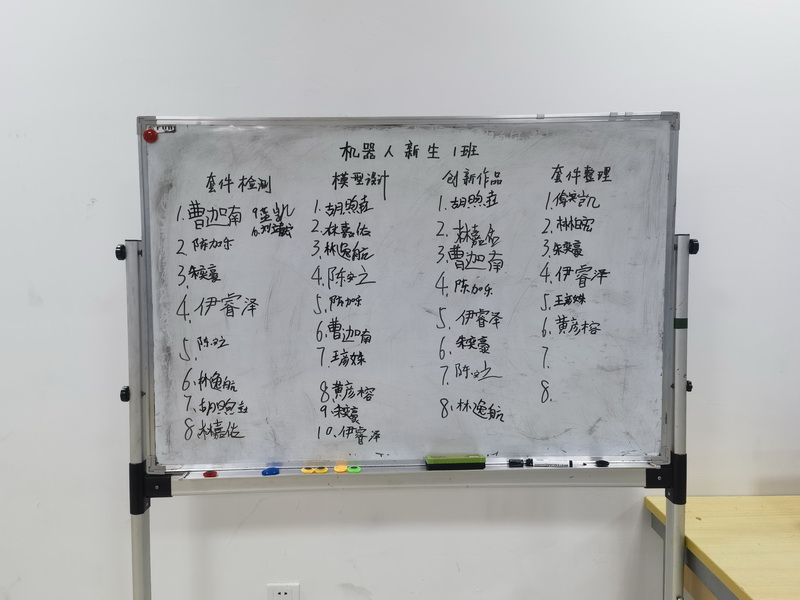 机器人新生1班
套件检测
1.曹迦南
2.陈加乐
3.朱奕豪
4.伊睿泽
5.陈
6.林逸航
7.胡煦垚
8.林嘉佑
9
10
模型设计
1.胡煦垚
2.林嘉佑
3.林逸航
4.陈
5.陈加乐
6.曹迦南
7.王彦姝
8.黄彦榕
9.朱奕豪
10.伊睿泽
创新作品
1.胡煦垚
2.林嘉佑
3.曹迦南
4.陈加乐
5.伊睿泽
6.朱奕豪
7.陈
8.林逸航
套件整理
1.凯
2.林柏宏
3.朱奕豪
4.伊睿泽
5.王彦姝
6.黄彦榕
7.
8.